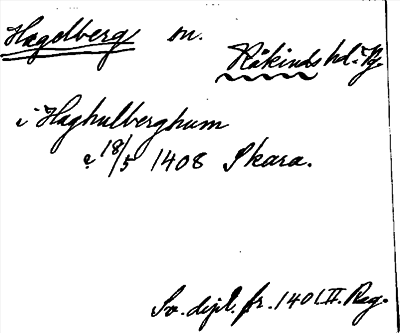 Hagelberg sn.
Råkinds hd. Vg.
i Haghulberghum
18/5 1408 Skara.
Sv. dipl. fr. 1401 II. Reg.